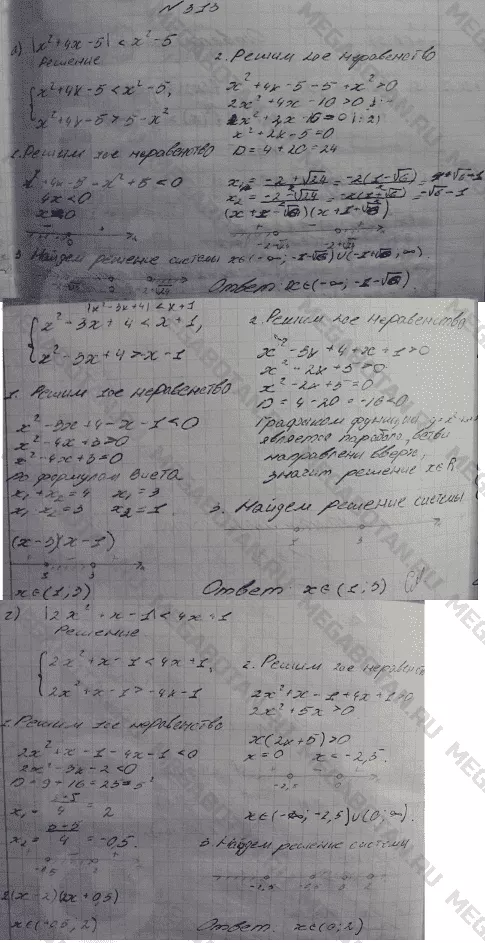 N 313
а) |x²+4x-5| < x²-5
Решение
x²+4x-5 < x²-5,
x²+4x-5 > 5-x²
1. Решим 1ое неравенство
4x < 0
x < 0
2. Решим 2ое неравенство
x²+4x-5-5+x² > 0
2x²+4x-10 > 0
x²+2x-5=0
D=4+20=24
3. Найдем решение системы x∈(-∞; -1-√6)∪(-1+√6; ∞)
Ответ: x∈(-∞; -1-√6)
|x²-3x+4| < x+1
x²-3x+4 < x+1,
x²-3x+4 > -x-1
1. Решим 1ое неравенство
x²-3x+4-x-1 < 0
x²-4x+3=0
По формулам Виета
x₁+x₂=4 x₁=3
x₁ x₂=3 x₂=1
(x-3)(x-1)
1 3
x∈(1;3)
2. Решим 2ое неравенство
x²-3x+4+x+1>0
x²-2x+5>0
x²-2x+5=0
D=4-20=-16<0
Графиком функции
является парабола, ветви
направлены вверх,
значит решение x∈R
3. Найдем решение системы
1 3
Ответ: x∈(1;3)
г) |2x²+x-1| < 4x+1
Решение
2x²+x-1 < 4x+1,
2x²+x-1 > -4x-1
1. Решим 1ое неравенство
2x²+x-1-4x-1 < 0
2x²-3x-2 < 0
D=9+16=25=5²
x₂= = -0,5.
2(x-2)(x+0,5)
x∈(-0,5; 2)
2. Решим 2ое неравенство
2x²+x-1+4x+1>0
2x²+5x>0
x(2x+5)>0
x=0 x=-2,5.
-2,5 0
x∈(-∞; -2,5)∪(0; ∞).
3. Найдем решение системы
-2,5 -0,5 0 2
Ответ: x∈(0;2)
MEGABOTAN.RU